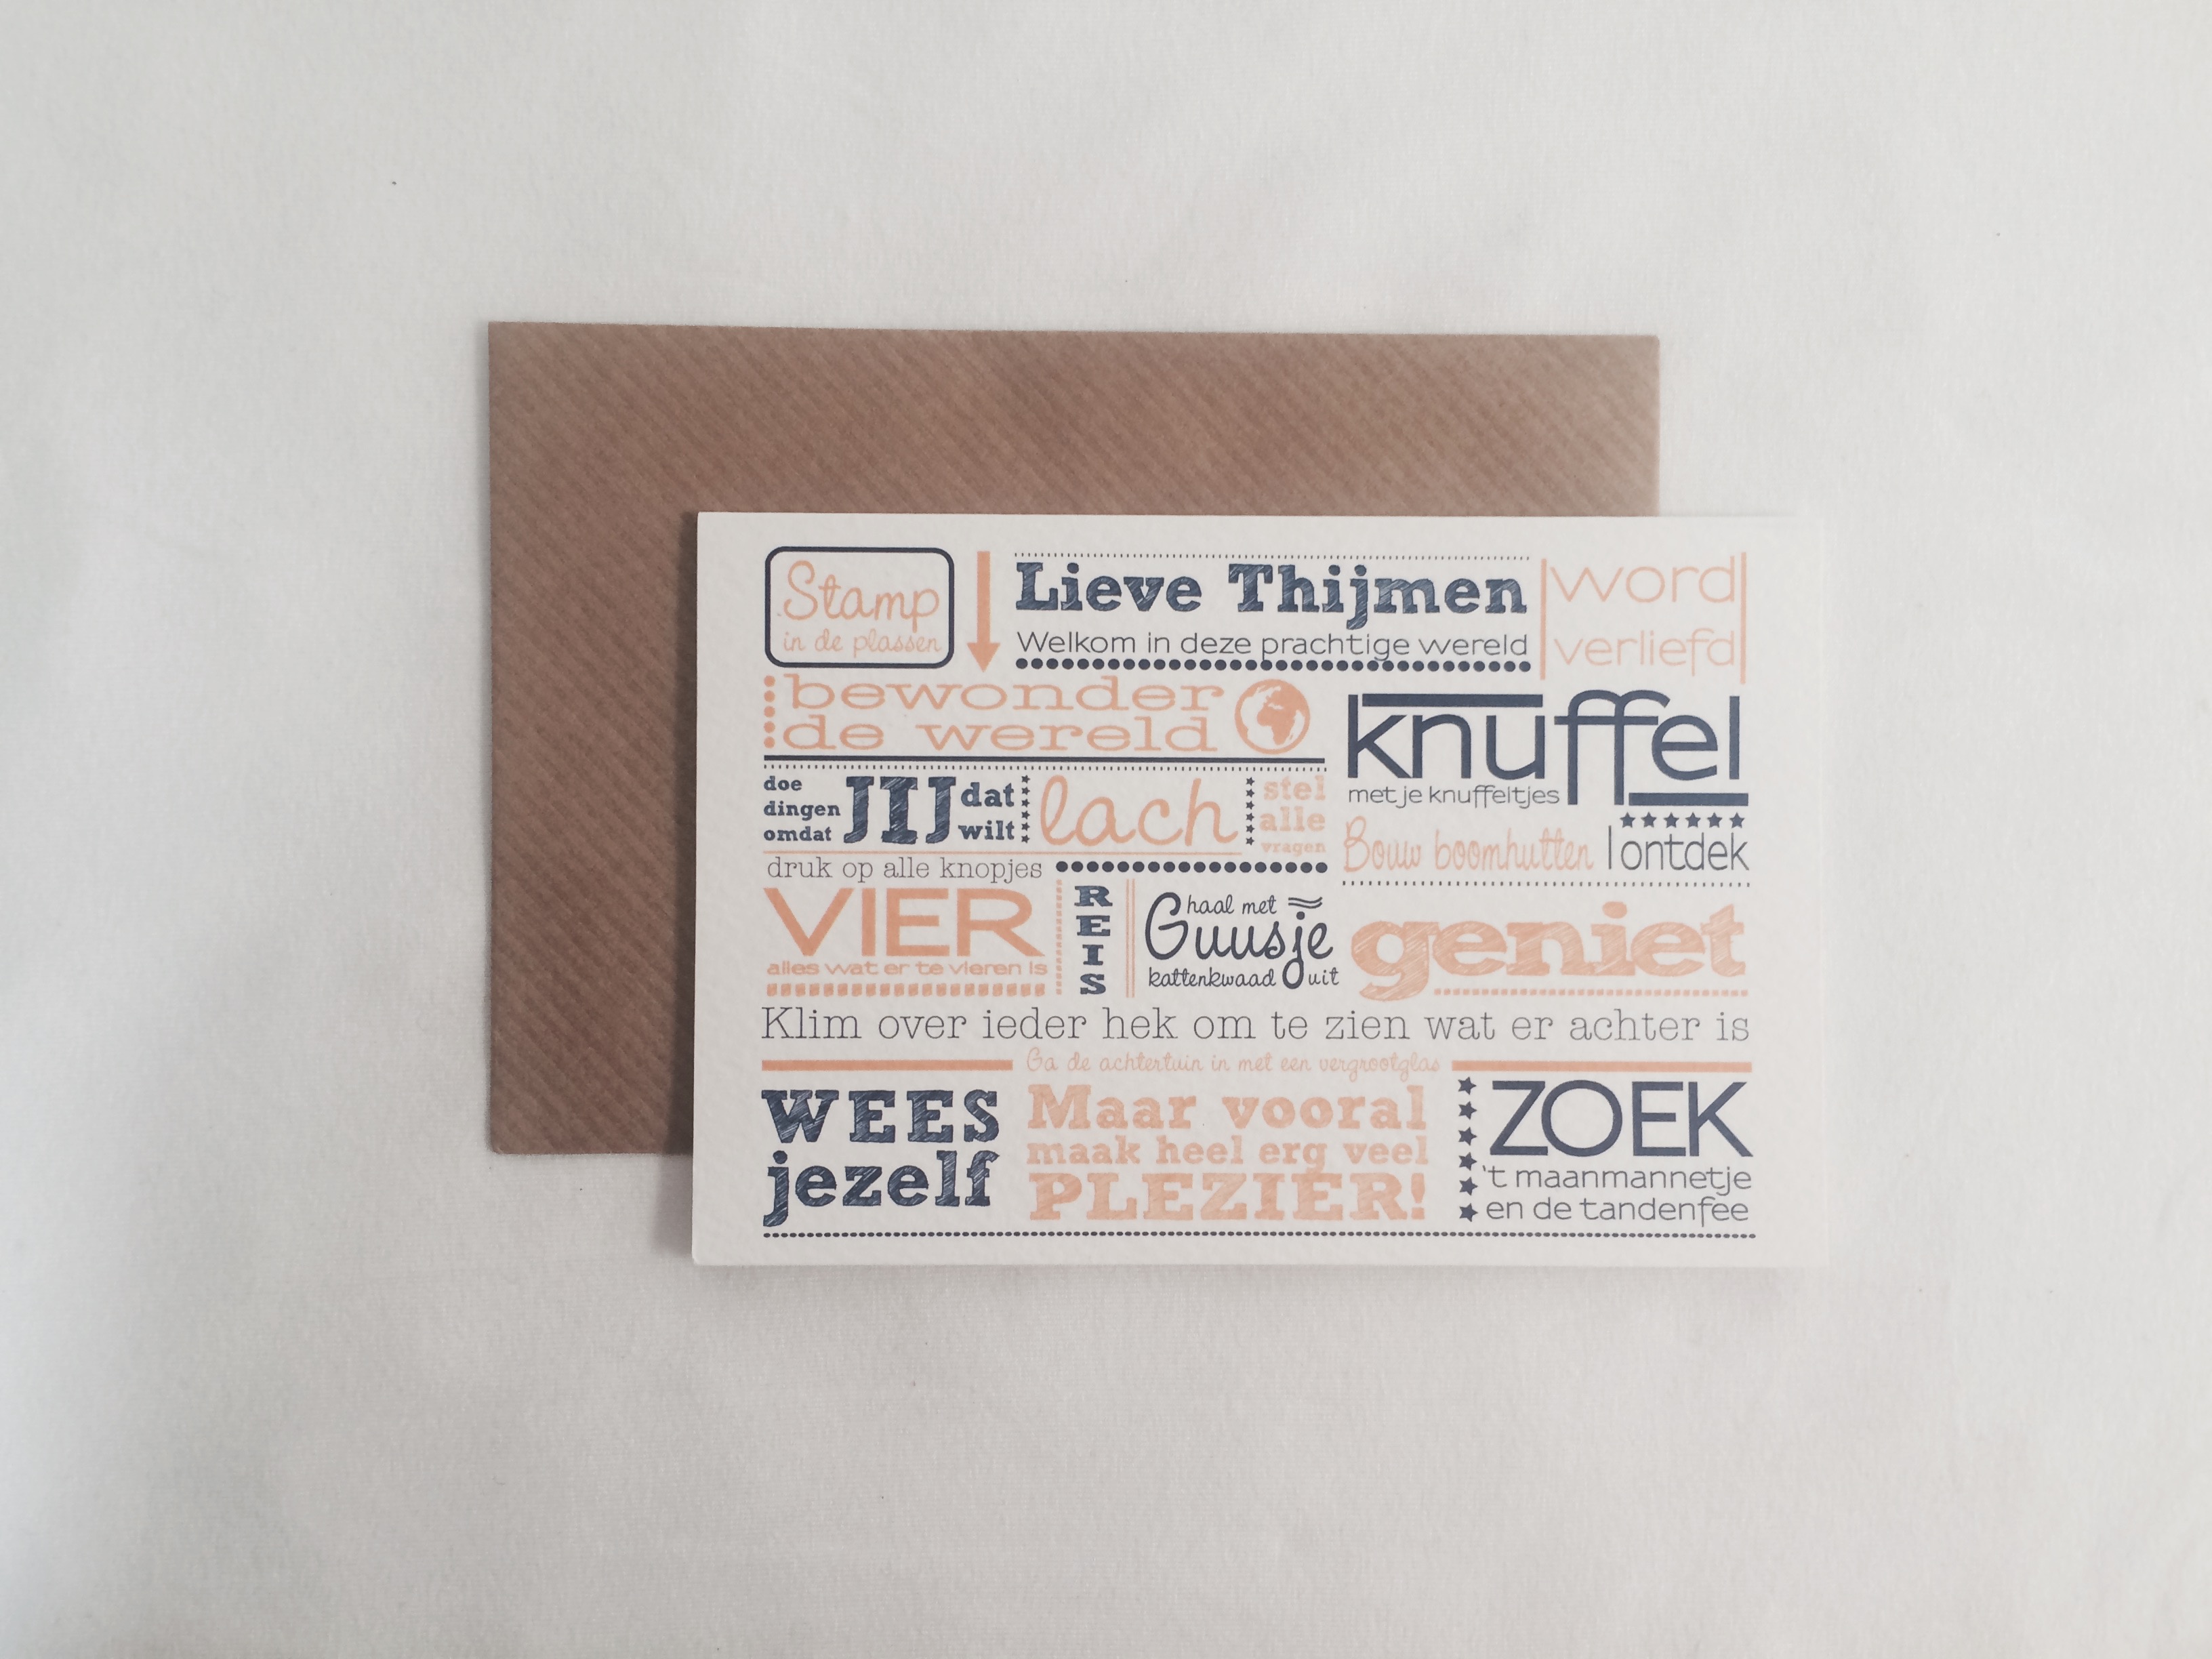 Stamp
in de plassen
Lieve Thijmen
Welkom in deze prachtige wereld
word
verliefd
bewonder
de wereld
knuffel
met je knuffeltjes
doe
dingen
omdat
JIJ
dat
wilt
lach
stel
alle
vragen
Bouw boomhutten
ontdek
druk op alle knopjes
VIER
alles wat er te vieren is
REIS
haal met
Guusje
kattenkwaad uit
geniet
Klim over ieder hek om te zien wat er achter is
Ga de achtertuin in met een vergrootglas
WEES
jezelf
Maar vooral
maak heel erg veel
PLEZIER!
ZOEK
't maanmannetje
en de tandenfee